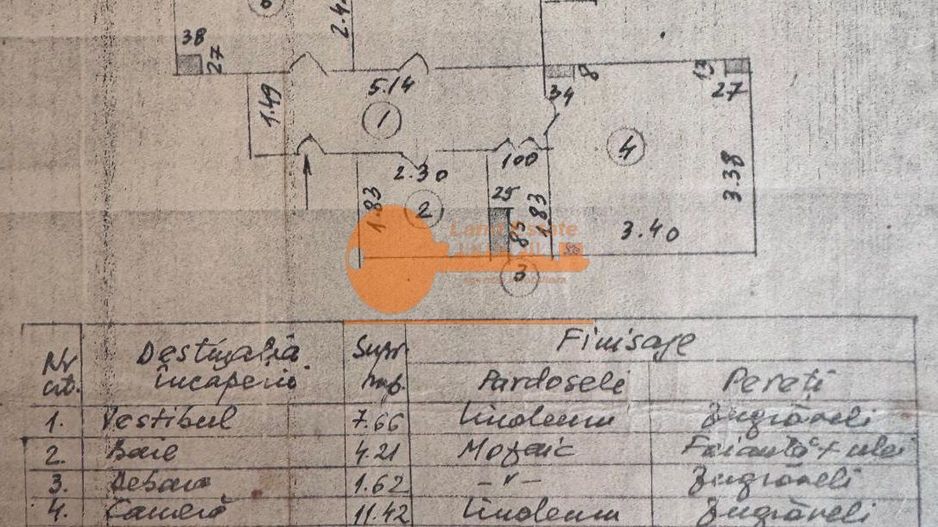 6
2.4
38
27
1.49
5.14
1
34
8
13
27
4
100
2.30
1.83
2
25
85
1.83
3.40
3.38
3
Land Estate
Nr crt.
Destinația încăperii
Supr.
Finisaje
Pardoseli
Pereți
1. Vestibul 7.66 Linoleum Zugrăveli
2. Baie 4.21 Mozaic Faianță + ulei
3. Debara 1.62 -"- Zugrăveli
4. Cameră 11.42 Linoleum Zugrăveli